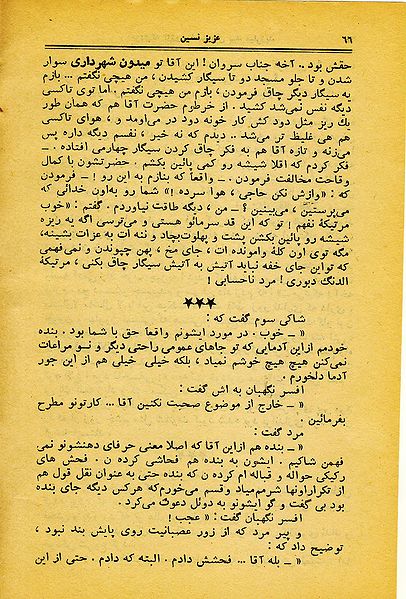 ۶۶
عزیز نسین
حقش بود .. آخه جناب سروان ! این آقا تو میدون شهرداری سوار
شدن و تا جلو مسجد دو تا سیگار کشیدن ، من هیچی نگفتم ... بازم
یه سیگار دیگه چاق فرمودن ، بازم من هیچی نگفتم . اما توی تاکسی
دیگه نفس نمی‌شد کشید . از خرطوم حضرت آقا هم که همان طور
یك ریز مثل دودکش کار خونه دود در می‌اومد و ، هوای تاکسی
هم هی غلیظ تر می‌شد .. دیدم که نه خیر ، نفسم دیگه داره پس
می‌زنه و تازه آقا هم به فکر چاق کردن سیگار چهارمی افتاده . ـ
فکر کردم که اقلا شیشه رو کمی پائین بکشم . حضرتشون با کمال
وقاحت مخالفت فرمودن . ـ واقعاً که بنازم به این رو ! ـ فرمودن
که : «وازش نکن حاجی ، هوا سرده !» شما رو به‌اون خدائی که
می‌پرستین ، می‌بینین ؟ ـ من ، دیگه طاقت نیاوردم . گفتم : «خوب
مرتیکهٔ نفهم ! تو که این قد سرمائو هستی و می‌ترسی اگه یه ریزه
شیشه رو پائین بکشن پشت و پهلوت بچاد و ننه ات به عزات بشینه،
مگه توی اون کلهٔ وامونده ات ، جای مخ ، پهن چپوندن و نمی‌فهمی
که تو این جای خفه نباید آتیش به آتیش سیگار چاق بکنی ، مرتیکهٔ
الدنگ دبوری ! مرد ناحسابی !
★★★
شاکی سوم گفت که :
« ـ خوب . در مورد ایشونم واقعاً حق با شما بود . بنده
خودمم از این آدمایی که تو جاهای عمومی راحتی دیگر و نـو مراعات
نمی‌کنن هیچ هیچ خوشم نمیاد ، بلکه خیلی خیلی هم از این جور
آدما دلخورم .
افسر نگهبان به اش گفت :
« ـ خارج از موضوع صحبت نکنین آقا ... کارتونو مطرح
بفرمائین .
مرد گفت :
« ـ بنده هم از این آقا که اصلا معنی حرفای دهنشونو نمی
فهمن شاکیم . ایشون به بنده هم فحاشی کرده ن . فحش های
رکیکی حواله و قباله ام کرده ن که بنده حتی به عنوان نقل قول هم
از تکرار اونها شرمم میاد و قسم می‌خورم که هر کس دیگه جای بنده
بود بی گفت و گو ایشونو به دوئل دعوت می‌کرد .
افسر نگهبان گفت : « عجب !
و پیر مرد که از زور عصبانیت روی پایش بند نبود ،
توضیح داد که :
« ـ بله آقا ... فحشش دادم . البته که دادم . حتی از این